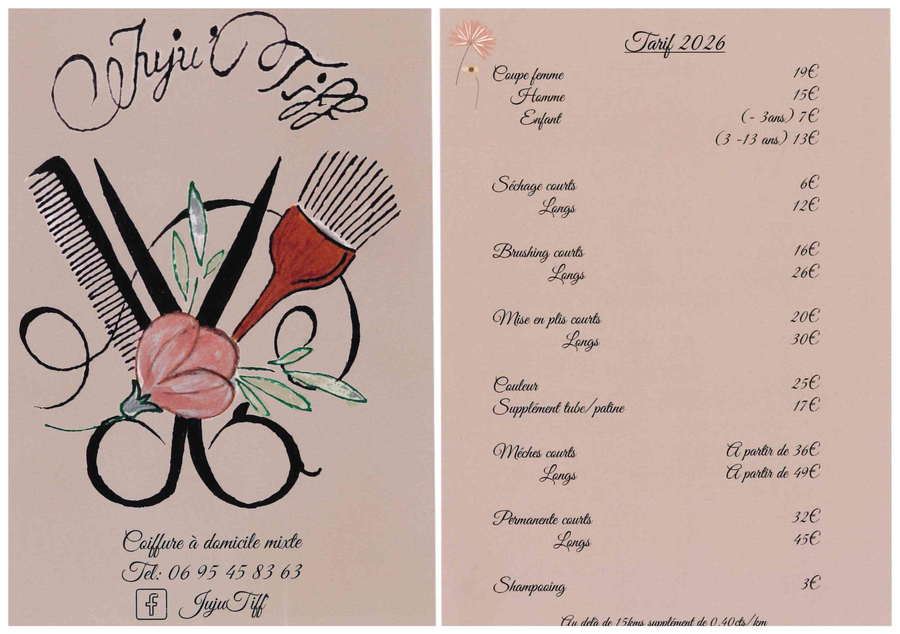 Juju'Tiff
Coiffure à domicile mixte
Tel: 06 95 45 83 63
f JujuTiff
Tarif 2026
Coupe femme 19€
Homme 15€
Enfant (- 3ans) 7€
(3 -13 ans) 13€
Séchage courts 6€
Longs 12€
Brushing courts 16€
Longs 26€
Mise en plis courts 20€
Longs 30€
Couleur 25€
Supplément tube/patine 17€
Méches courts A partir de 36€
Longs A partir de 49€
Permanente courts 32€
Longs 45€
Shampooing 3€
Au delà de 15kms supplément de 0,40cts/km